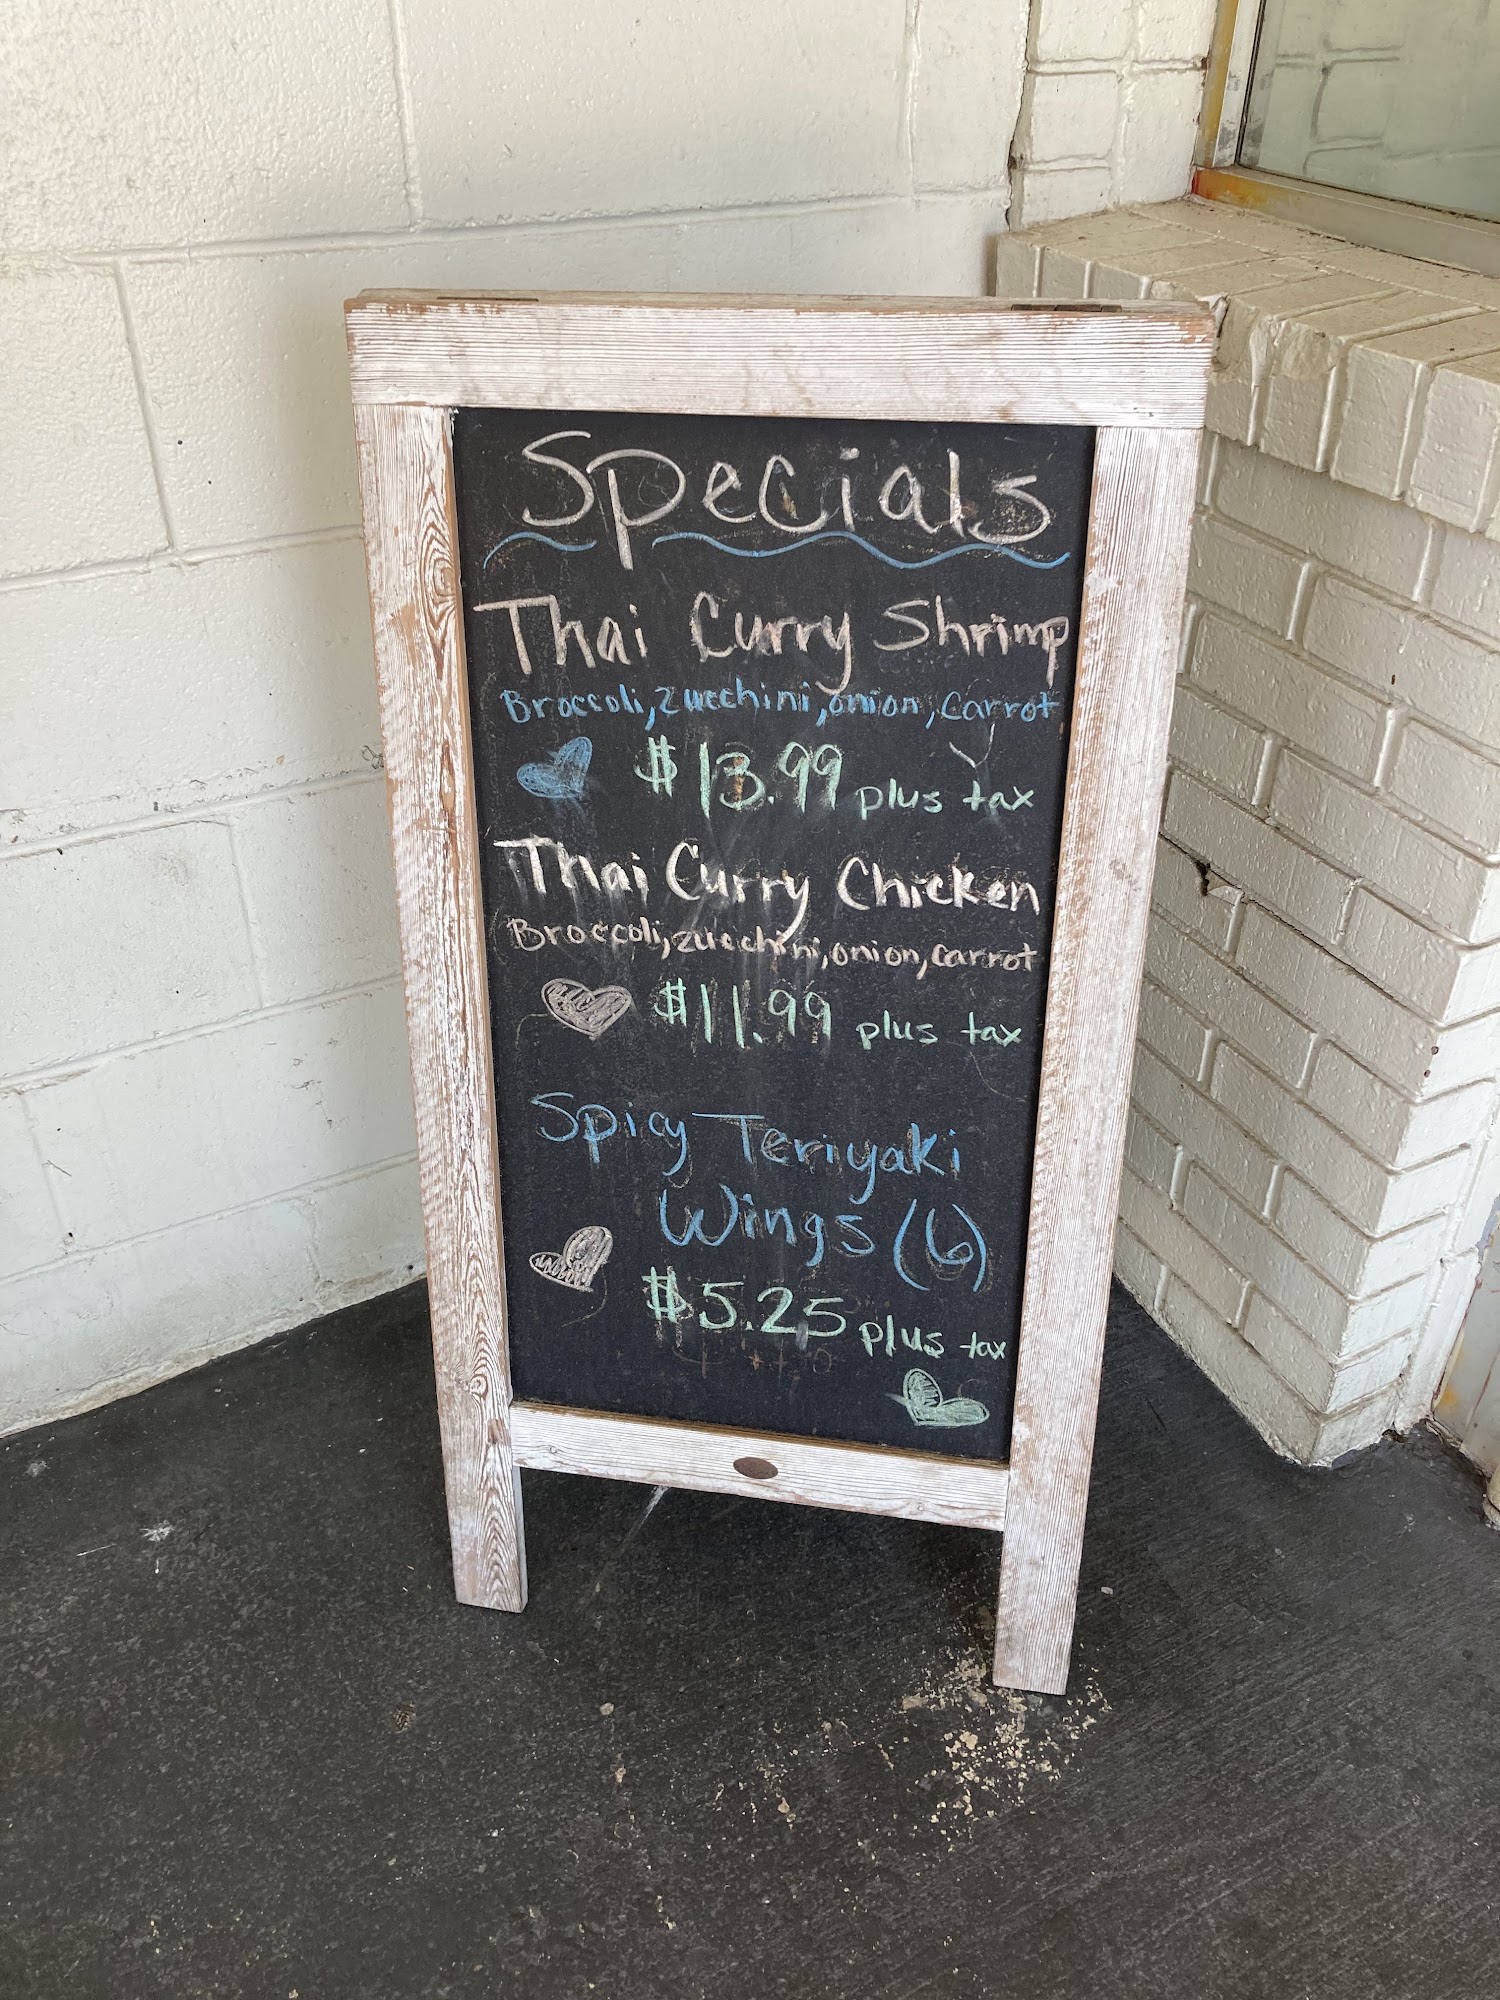 Specials
Thai Curry Shrimp
Broccoli, zucchini, onion, carrot
$13.99 plus tax
Thai Curry Chicken
Broccoli, zucchini, onion, carrot
$11.99 plus tax
Spicy Teriyaki
Wings (6)
$5.25 plus tax